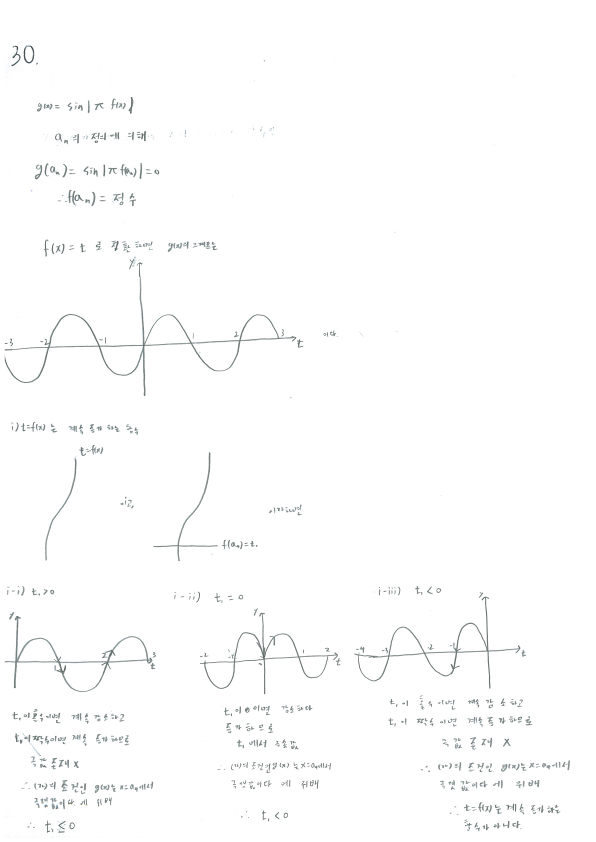 30.
g(x) = sin|π f(x)|
a_n의 정의에 의해
g(a_n) = sin|π f(a_n)| = 0
∴ f(a_n) = 정수
f(x) = t 로 치환하면 g(x)의 그래프는
y
-3 -2 -1 1 2 3 t 이다.
i) t=f(x) 는 계속 증가하는 함수
t=f(x)
이고, 이라하면
f(a_n)=t₁
i-i) t₁>0
y
1 2 3
t
t₁이 홀수이면 계속 감소하고
t₁이 짝수이면 계속 증가하므로
극값 존재 X
∴ (가)의 조건인 g(x)는 x=a_n에서
극댓값이다 에 위배
∴ t₁ ≤ 0
i-ii) t₁ = 0
y
-2 -1 1 2
t
t₁이 0이면 감소하다
증가하므로
t₁에서 극솟값
∴ (가)의 조건인 g(x)는 x=a_n에서
극댓값이다 에 위배
∴ t₁ < 0
i-iii) t₁ < 0
y
-4 -3 -2 -1 t
t₁이 홀수이면 계속 감소하고
t₁이 짝수이면 계속 증가하므로
극값 존재 X
∴ (가)의 조건인 g(x)는 x=a_n에서
극댓값이다 에 위배
∴ t=f(x)는 계속 증가하는
함수가 아니다.